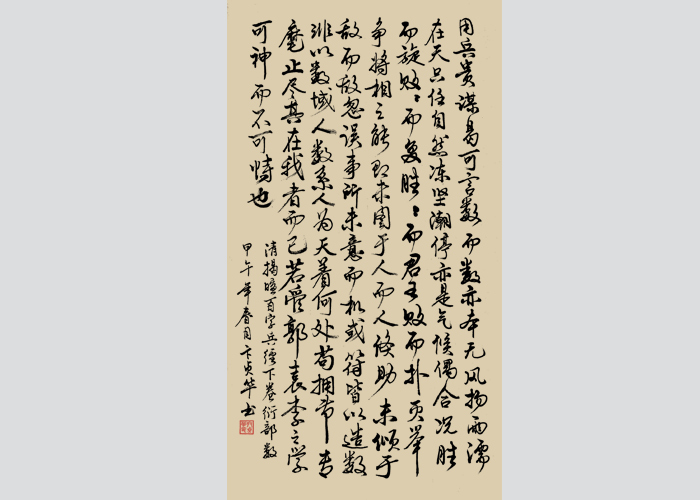 用兵贵谋曷可言数而数亦本无风扬雨濡
在天只任自然冻坚潮停亦是气候偶合况胜
而旋败々而复胜々而君王败而扑灭举
争将相之能即未图于人而人倏助未倾于
敌而敌忽误事所未意而机或符皆以造数
非以数域人数系人为天着何处苟拥节专
麾止尽其在我者而已若管郭袁李之学
可神而不可恃也
清揭暄百字兵经下卷衍部数
甲午年春月卞贞华书